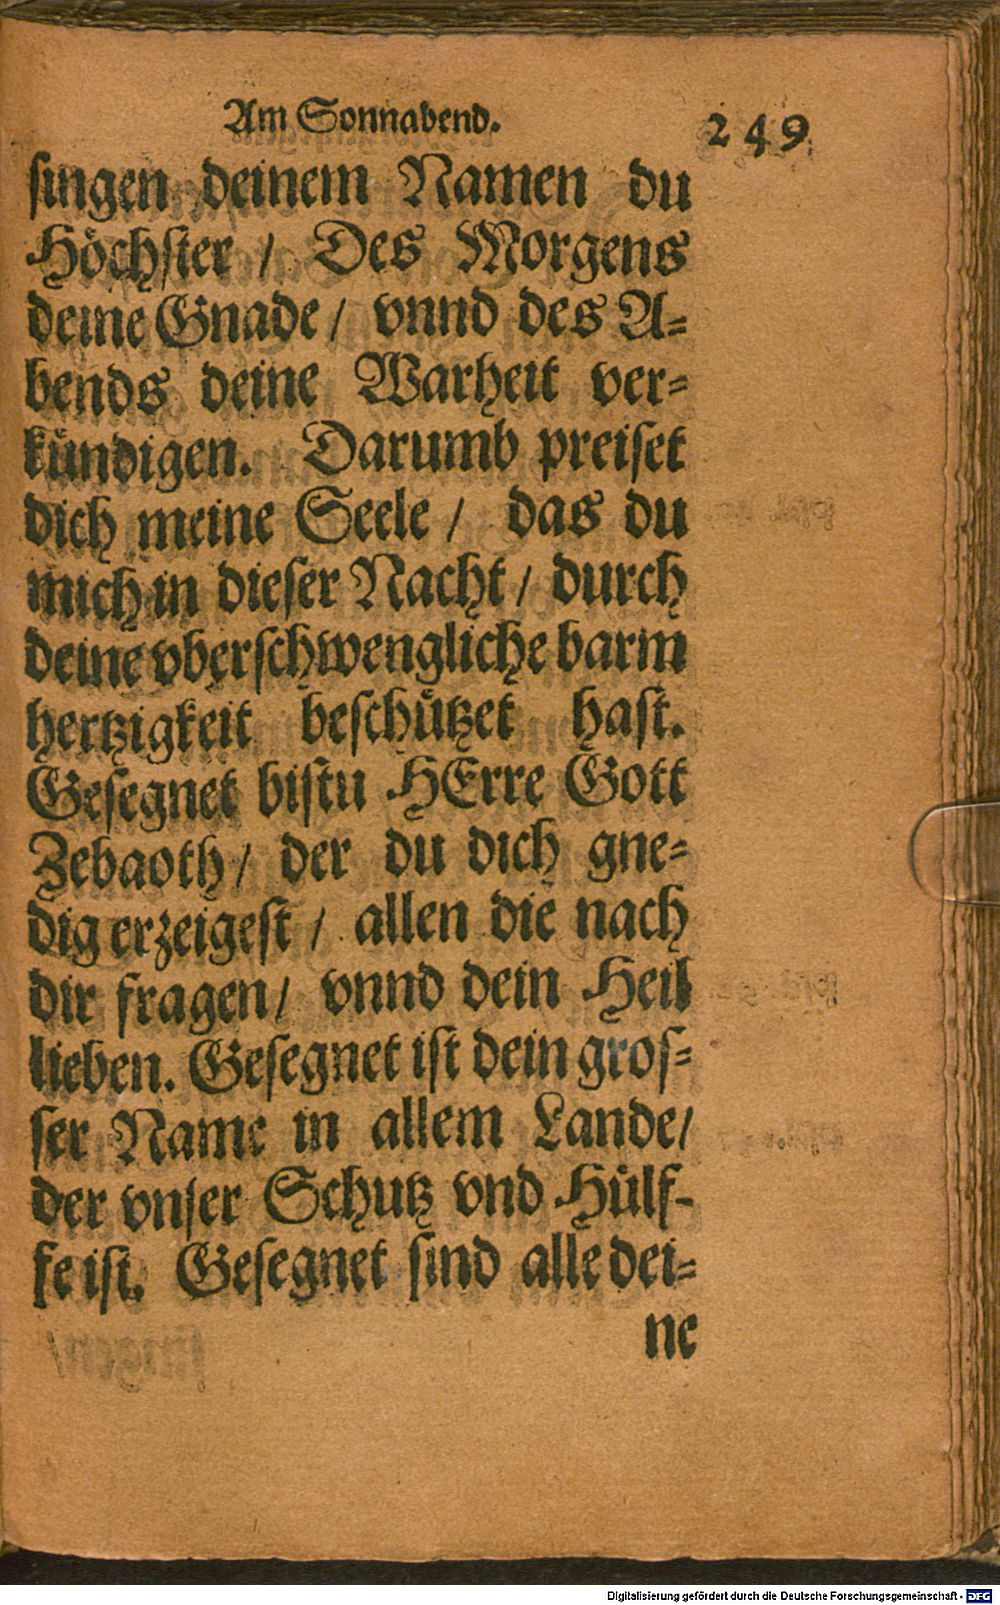 Am Sonnabend. 249
singen deinem Namen du
Höchster / Des Morgens
deine Gnade / vnnd des A-
bends deine Warheit ver-
kündigen. Darumb preiset
dich meine Seele / das du
mich in dieser Nacht / durch
deine vberschwengliche barm
hertzigkeit beschützet hast.
Gesegnet bistu HErre Gott
Zebaoth / der du dich gne-
dig erzeigest / allen die nach
dir fragen / vnnd dein Heil
lieben. Gesegnet ist dein gros-
ser Name in allem Lande /
der vnser Schutz vnd Hülf-
fe ist. Gesegnet sind alle dei-
ne
Digitalisierung gefördert durch die Deutsche Forschungsgemeinschaft - DFG